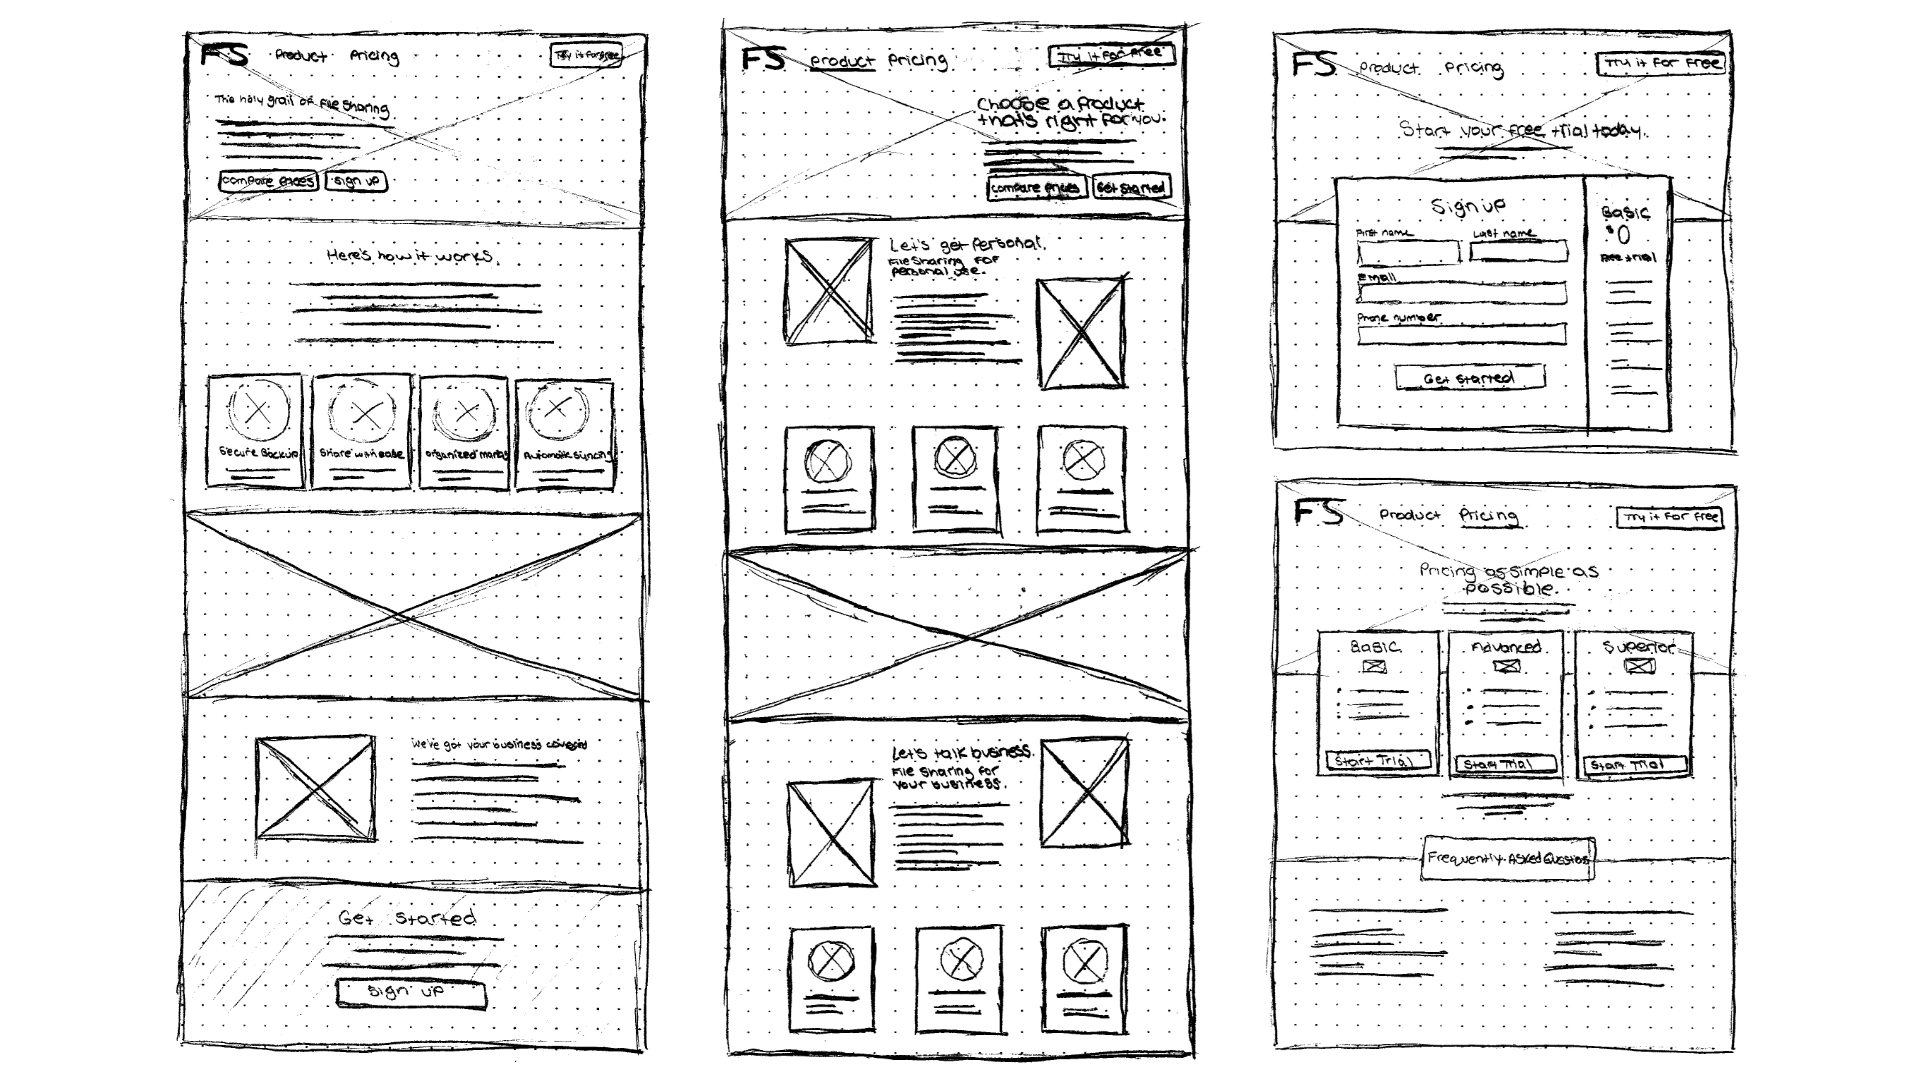 FS Product Pricing Try it for free
The holy grail of File Sharing
compare prices sign up
Here's how it works.
Secure Backup Share with ease organized Automatic Syncing
We've got your business covered
Get Started
Sign up
FS product Pricing Try it For Free
Choose a product
that's right for you.
compare prices Get Started
Let's get Personal.
File Sharing For
Personal use.
Let's talk business.
File Sharing for
Your business.
FS Product Pricing Try it For Free
Start your free trial today.
Sign up
First name Last name
Email
Phone number
Get Started
Basic
$0
Free trial
FS Product Pricing Try it For Free
Pricing as simple as
possible.
Basic Advanced Superior
Start Trial Start Trial Start Trial
Frequently Asked